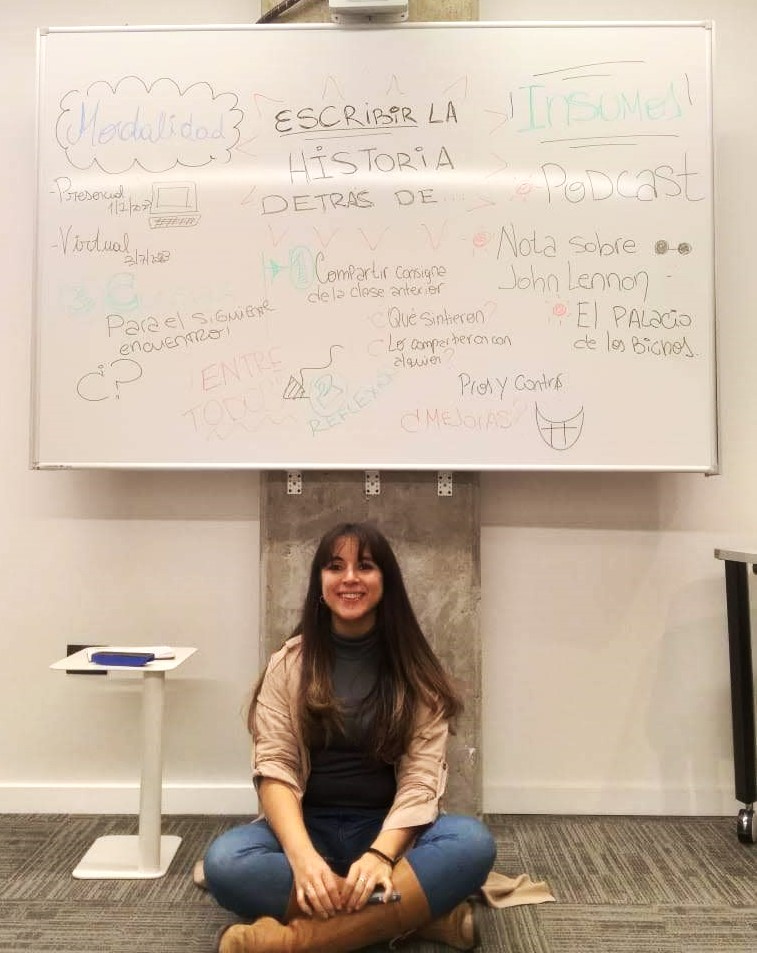 Modalidad
- Presencial
- Virtual
Para el SIGUIENTE
encuentro!
¿?
ESCRIBIR LA
HISTORIA
DETRAS DE...
1 Compartir consigna
de la clase anterior
¿Qué sintieron?
¿Lo compartieron con
alguien?
ENTRE
TODOS
2
REFLEXIÓN
Pros y Contras
¿MEJORAS?
¡INSUMOS!
PODCAST
Nota sobre
John Lennon
El PALACIO
de los Bichos.